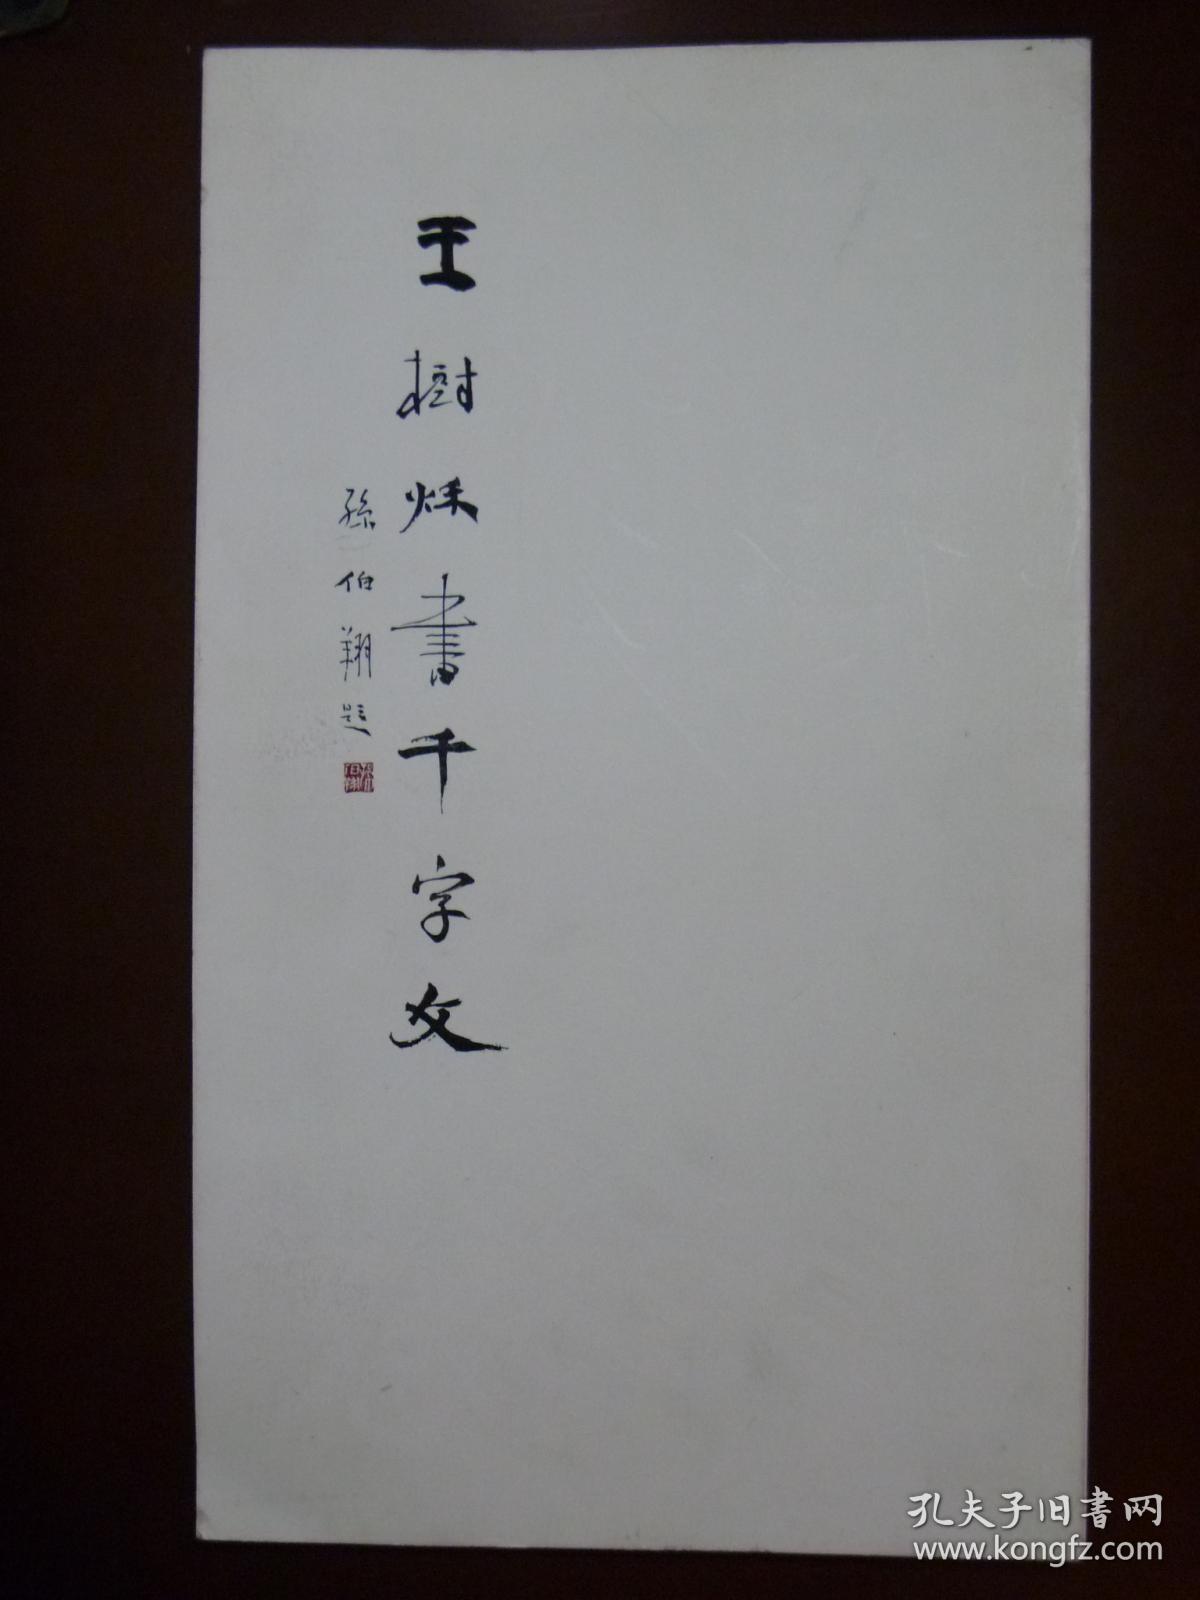 王樹秌書千字文
孫伯翔題
孔夫子旧書网
www.kongfz.com